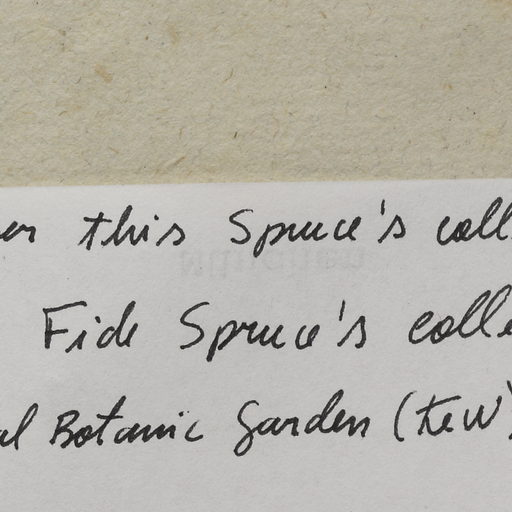 this Spruce's coll
Fide Spruce's colle
al Botanic Garden (Kew)